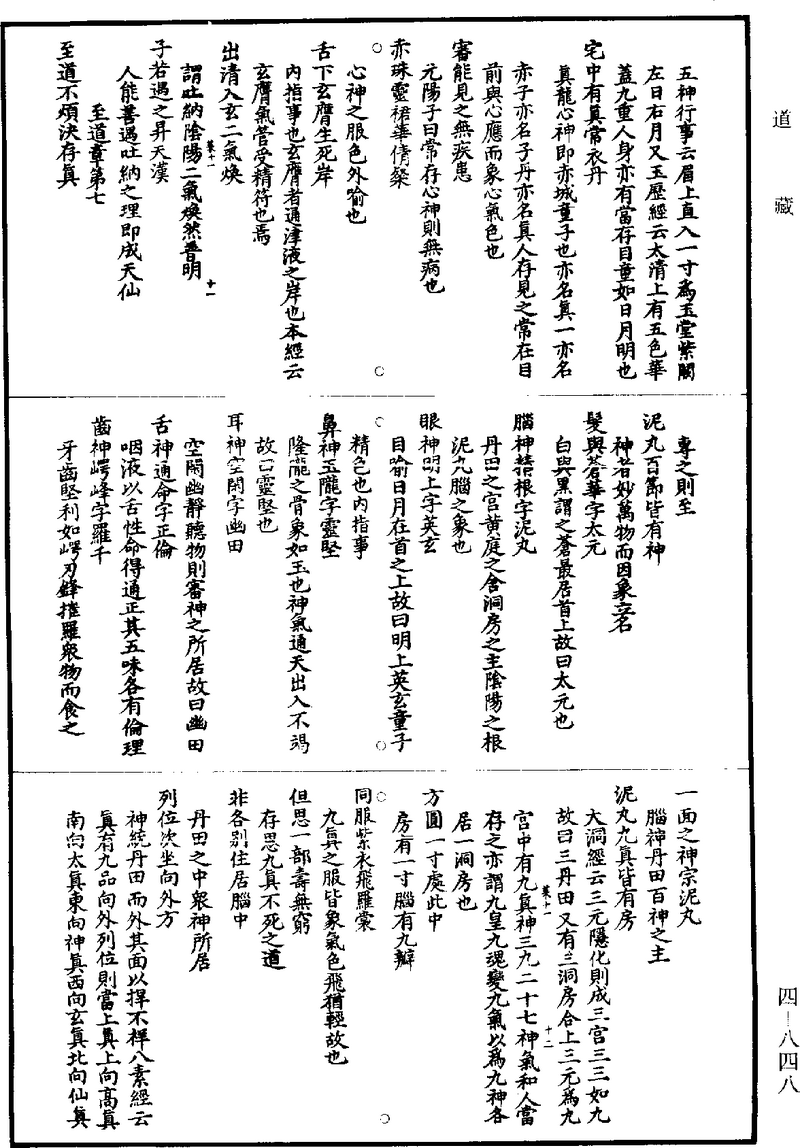 道藏
五神行事云眉上直入一寸爲玉堂紫闕
左日右月又玉歷經云太清上有五色華
蓋九重人身亦有當存目童如日月明也
宅中有眞常衣丹
眞龍心神即赤城童子也亦名眞一亦名
赤子亦名子丹亦名眞人存見之常在目
前與心應而象心氣色也
審能見之無疾患
元陽子曰常存心神則無病也
赤珠靈裙華蒨粲
心神之服色外喻也
舌下玄膺生死岸
內指事也玄膺者通津液之岸也本經云
玄膺氣管受精符也焉
出清入玄二氣煥
謂吐納陰陽二氣煥然普明
菜十一
十一
子若遇之昇天漢
人能善遇吐納之理即成天仙
至道章第七
至道不煩決存眞
專之則至
泥丸百節皆有神
神者妙萬物而因象立名
髮與蒼華字太元
白與黑謂之蒼最居首上故曰太元也
腦神精根字泥丸
丹田之宮黃庭之舍洞房之主陰陽之根
泥丸腦之象也
眼神明上字英玄
目喻日月在首之上故曰明上英玄童子
精色也內指事
鼻神玉隴字靈堅
隆隴之骨象如玉也神氣通天出入不竭
故曰靈堅也
耳神空閑字幽田
空閑幽靜聽物則審神之所居故曰幽田
舌神通命字正倫
咽液以舌性命得通正其五味各有倫理
齒神崿峰字羅千
牙齒堅利如崿刃鋒摧羅衆物而食之
一面之神宗泥丸
腦神丹田百神之主
泥丸九眞皆有房
大洞經云三元隱化則成三宮三三如九
故曰三丹田又有三洞房合上三元爲九
宮中有九眞神三九二十七神氣和人當
菜十一
十二
存之亦謂九皇九魂變九氣以爲九神各
居一洞房也
方圓一寸處此中
房有一寸腦有九瓣
同服紫衣飛羅裳
九眞之服皆象氣色飛猶輕故也
但思一部壽無窮
存思九眞不死之道
非各別住居腦中
丹田之中衆神所居
列位次坐向外方
神統丹田而外其面以捍不祥八素經云
眞有九品向外列位則當上眞上向高眞
南向太眞東向神眞西向玄眞北向仙眞
四—八四八